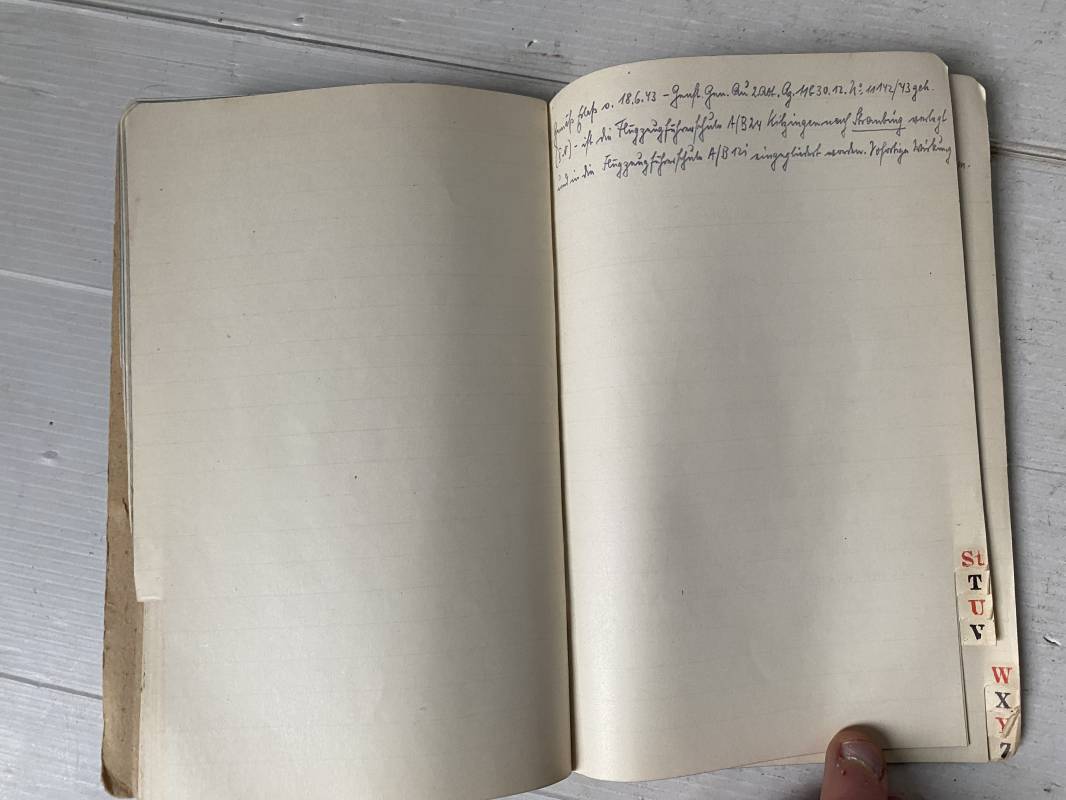 Gemäß Erlaß v. 18.6.43 - Genst. Gen. Qu 2. Abt. Az. 11 b 30.12. Nr. 11142/43 geh.
- ist die Flugzeugführerschule A/B 24 Kitzingen nach Straubing verlegt
und in die Flugzeugführerschule A/B 121 eingegliedert worden. Sofortige Wirkung
St
T
U
V
W
X
Y
Z